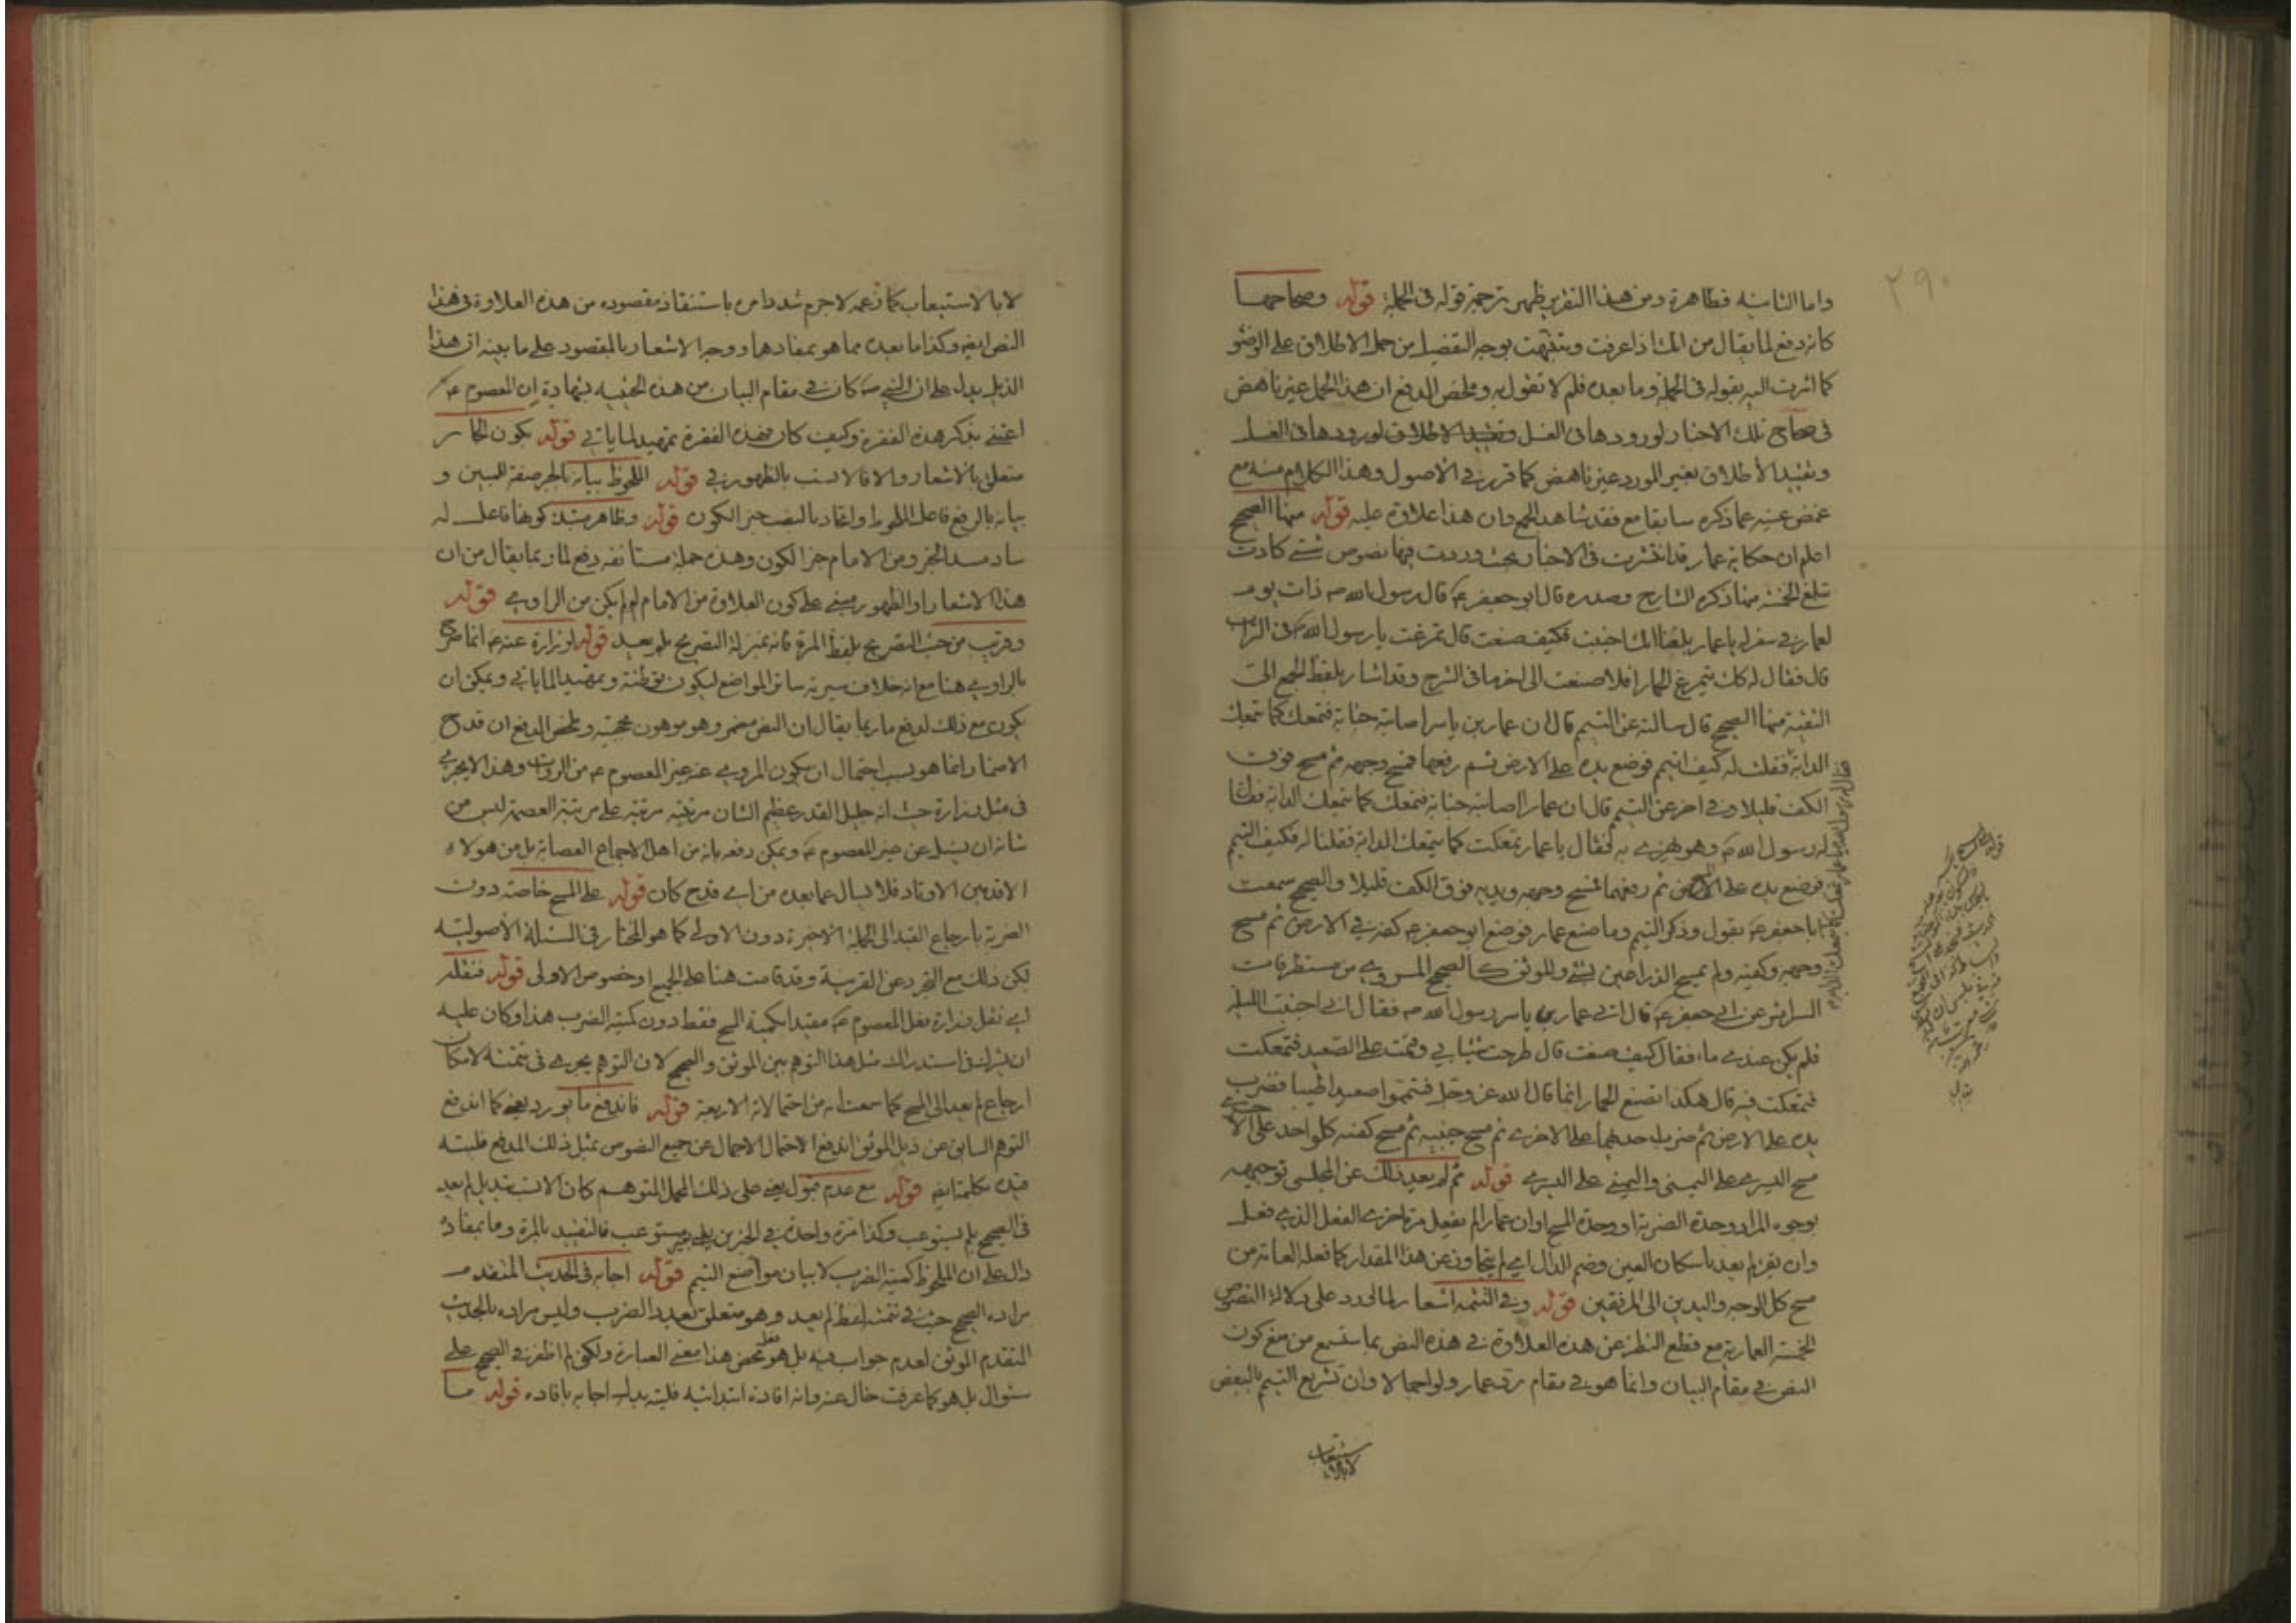 ٢٩٠
واما الثانيه فظاهرة ومن هذا التقرير ظهر ترجمة قوله فى الجملة قوله وصحاحها
كانه دفع لما يقال من انك اذا عرفت وتنبهت بوجه التفصيل من حمل الاطلاق على الوضوء
كما اشرت اليه بقوله فى الجملة وما بعده فلم لا تقول به وملخص الدفع ان هذا الحمل غير ناهض
فى صحاح تلك الاخبار لورودها فى الغسل وتقييد الاطلاق لورودها فى الغسل
وتقييد الاطلاق بغير المورد غير ناهض كما قرر فى الاصول وهذا الكلام منه مع
غمض عينه عما ذكره سابقا مع فقد شاهد الجمع وان هذا علاوة عليه قوله منها الصحيح
اعلم ان حكاية عمار قد انتشرت فى الاخبار بحيث وردت فيها نصوص شتى كادت
تبلغ الخمسة منها ذكره الشارح وصدره قال ابو جعفر ع قال رسول الله ص ذات يوم
لعمار فى سفر له يا عمار بلغنا انك اجنبت فكيف صنعت قال تمرغت يا رسول الله ص فى التراب
قال فقال له كان يتمرغ الحمار افلا صنعت الى اخر ما فى الشرح وقد اشار بلفظ الجمع الى
البقية منها الصحيح قال سالته عن التيمم قال ان عمار بن ياسر اصابته جنابة فتمعك كما تتمعك
الدابة فقلت له كيف التيمم فوضع يده على الارض ثم رفعها فمسح وجهه ثم مسح فوق
الكف قليلا وفى اخر عن التيمم قال ان عمارا اصابته جنابة فتمعك كما تتمعك الدابة فقال
له رسول الله ص وهو يهزء به فقال يا عمار تمعكت كما يتمعك الدابة فقلنا له فكيف التيمم
فوضع يده على الارض ثم رفعهما فمسح وجهه ويديه فوق الكف قليلا والصحيح سمعت
ابا جعفر ع يقول وذكر التيمم وما صنع عمار فوضع ابو جعفر ع كفيه فى الارض ثم مسح
وجهه وكفيه ولم يمسح الذراعين بشئ والموثق كالصحيح المروى من مستطرفات
السرائر عن ابى جعفر ع قال اتى عمار بن ياسر رسول الله ص فقال انى اجنبت الليلة
فلم يكن عندى ماء فقال كيف صنعت قال طرحت ثيابى وقمت على الصعيد فتمعكت
فتمعكت فيه قال هكذا يصنع الحمار انما قال الله عز وجل فتيمموا صعيدا طيبا فضرب
يده على الارض ثم ضرب احديهما على الاخرى ثم مسح جنبيه ثم مسح كفيه كل واحد على الاخرى
مسح اليسرى على اليمنى واليمنى على اليسرى قوله ثم لم يعد ذلك عن المجلسى توجيهه
بوجوه المراد وحدة الضربة او وحدة المسح او ان عمارا لم يفعل مرة اخرى الفعل الذى فعل
وان يقرء لم يعد باسكان العين وضم الدال اى لم يتجاوز عن هذا المقدار كما فعله العامة من
مسح كل الوجه واليدين الى المرفقين قوله وفى التتمه اشعار لما لى ردد على دلالة النصوص
الخمسة العمارية مع قطع النظر عن هذه العلاوة فى هذه النص بما ستسمع من منع كون
النص فى مقام البيان وانما هو فى مقام رد عمار ولو اجمالا وان تشريع التيمم بالبعض
لا بالاستيعاب
لا بالاستيعاب كما زعمه لاجرم شدد امره باستنقاذ مقصوده من هذه العلاوة فى هذا
النص ايضا وكذا ما بعده مما هو بمفادها ووجه الاشعار بالمقصود على ما بينه ان هذا
الذيل يدل على ان النبى ص كان فى مقام البيان من هذه الحيثيه بشهادة ان المعصوم ع
اعتنى بذكر هذه الفقرة وكيف كان فهذه الفقرة تمهيد لما ياتى قوله بكون الجار
متعلق بالاشعار والا فالانسب بالظهور فى قوله الملحوظ بيانه بالجر صفة للمبين و
بيانه بالرفع فاعل الملحوظ واتحاد بالنصب خبر الكون قوله وظاهر كونها فاعل له
ساد مسد الخبر ومن الامام خبر الكون وهذه جملة مستانفه دفع لما ربما يقال من ان
هذا الاشعار او الظهور مبنى على كون العلاوة من الامام لم لم يكن من الراوى قوله
وقريب من حيث التصريح بلفظ المرة فانه بمنزلة التصريح بلم يعد قوله لزرارة عنه ع انما صرح
بالراوى هنا مع انه خلاف سيرته سائر المواضع ليكون توطئة وتمهيدا لما ياتى ويمكن ان
يكون مع ذلك لدفع ما ربما يقال ان النص مضمر وهو موهون بحجيته وملخص الدفع ان قدح
الاضمار انما هو بسبب احتمال ان يكون المروى عنه غير المعصوم ع من الرواة وهذا لا يجرى
فى مثل زرارة حيث انه جليل القدر عظيم الشان مرتبته مرتبة على مرتبة العصمة ليس من
شانه ان يسئل عن غير المعصوم ع ويمكن دفعه بانه من اهل الاجماع العصابة بل من هولاء
الاقدمين الاوتاد فلا يبال عما بعده من اى قدح كان قوله على المسح خاصة دون
الضربة بارجاع القيد الى الجملة الاخيرة دون الاولى كما هو المختار فى المسئلة الاصولية
لكن ذلك مع التجرد عن القرينة وقد قامت هنا على الجميع او خصوص الاولى قوله فنقله
اى نقل زرارة بفعل المعصوم ع مقيدا بكمية المسح فقط دون كمية الضرب هذا وكان عليه
ان يشرك فى استدراك مثل هذا التوهم بين الموثق والصحيح لان التوهم يجرى فى تتمته لامكان
ارجاع لم يعد الى المسح كما سمعت انه من احتمالاته الاربعة قوله فاندفع ما يورد يعنى كما اندفع
التوهم السابق عن ذيل الموثق اندفع الاحتمال الاجمال عن جميع النصوص بمثل ذلك المدفع فليته
قيده بكلمة ايضا قوله مع عدم قبول يعنى على ذلك المحمل المتوهم كان الانسب تبديل لم يعد
فى الصحيح بلم يستوعب وكذا مرة واحدة فى الخبرين بغير مستوعب فالتقييد بالمرة وما بمفاده
دال على ان الملحوظ كمية الضرب لا بيان مواضع التيمم قوله اجابه فى الحديث المتقدم
مراده الصحيح حيث فى تتمته لفظ لم يعد وهو متعلق بعدد الضرب وليس مراده بالحديث
المتقدم الموثق لعدم جواب فيه بل هو فعل محض هذا معنى العبارة ولكن لم اظفر فى الصحيح على
سئوال بل هو كما عرفت خال عنه وانه افادة ابتدائيه فليته بدل اجابه بافاده قوله ما